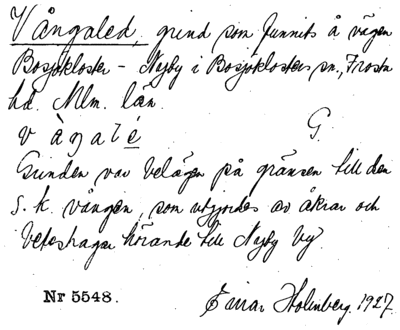 Vångaled, grind som funnits å vägen
Bosjökloster - Nyby i Bosjöklosters sn., Frosta
hd. Mlm. län.
v à ŋ a l é G.
Grinden var belägen på gränsen till den
s. k. vången, som utgjordes av åkrar och
beteshagar hörande till Nyby by
Nr 5548. Einar Holmberg. 1927.